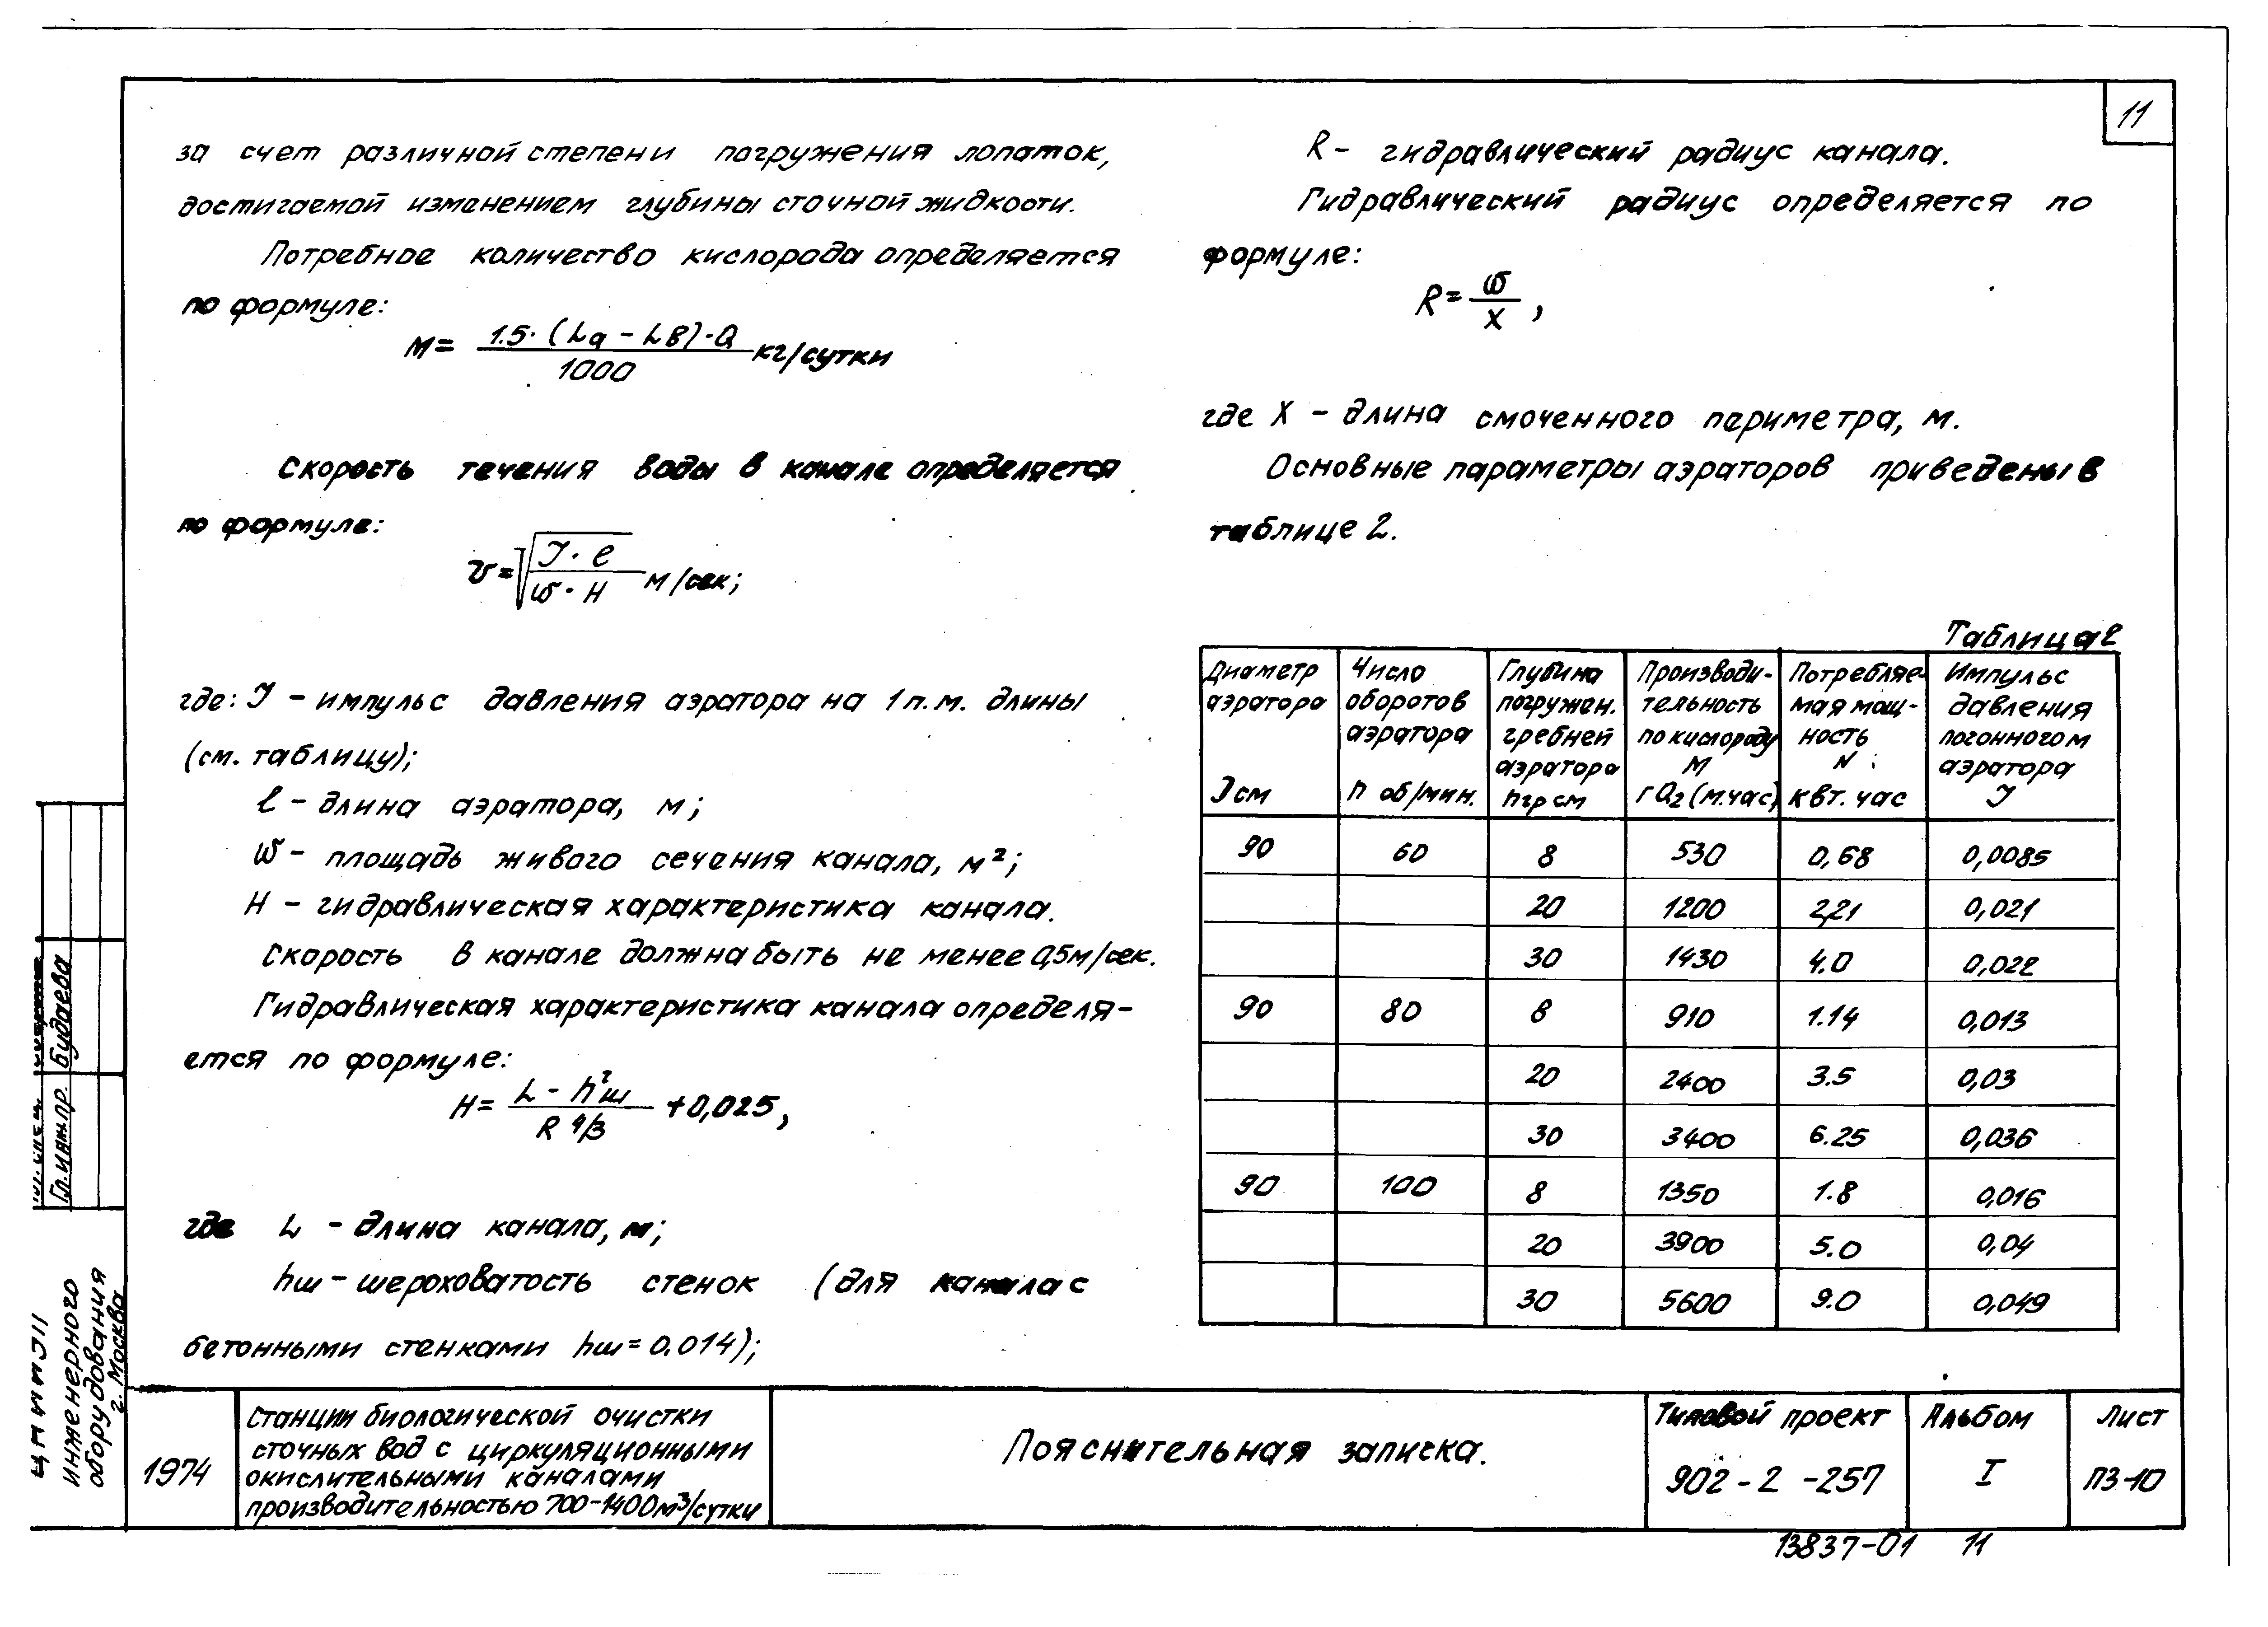 11
за счет различной степени погружения лопаток,
достигаемой изменением глубины сточной жидкости.
Потребное количество кислорода определяется
по формуле:
M= 1.5·(La – LB)·Q / 1000 кг/сутки
Скорость течения воды в канале определяется
по формуле:
v=√(J·ℓ / ω·H) м/сек;
где: J – импульс давления аэратора на 1 п.м. длины
(см. таблицу);
ℓ – длина аэратора, м;
ω – площадь живого сечения канала, м²;
H – гидравлическая характеристика канала.
Скорость в канале должна быть не менее 0,5м/сек.
Гидравлическая характеристика канала определя-
ется по формуле:
H= L – h²ш / R 4/3 +0,025,
где L – длина канала, м;
hш – шероховатость стенок (для канала с
бетонными стенками hш = 0.014);
R – гидравлический радиус канала.
Гидравлический радиус определяется по
формуле:
R= ω / X ,
где X – длина смоченного периметра, м.
Основные параметры аэраторов приведены в
таблице 2.
Таблица 2
Диаметр аэратора J см | Число оборотов аэратора n об/мин. | Глубина погружен. гребней аэратора hгр см | Производи-тельность по кислороду M г O2 (м.час) | Потребляе-мая мощ-ность N квт. час | Импульс давления погонного м аэратора J
90 | 60 | 8 | 530 | 0,68 | 0,0085
20 | 1200 | 2,21 | 0,021
30 | 1430 | 4.0 | 0,022
90 | 80 | 8 | 910 | 1.14 | 0,013
20 | 2400 | 3.5 | 0,03
30 | 3400 | 6.25 | 0,036
90 | 100 | 8 | 1350 | 1.8 | 0,016
20 | 3900 | 5.0 | 0,04
30 | 5600 | 9.0 | 0,049
Гл. инж. пр. Будаева
ЦНИИЭП
инженерного
оборудования
г. Москва
1974
Станции биологической очистки
сточных вод с циркуляционными
окислительными каналами
производительностью 700–1400м³/сутки
Пояснительная записка.
Типовой проект
902-2-257
Альбом
I
Лист
ПЗ-10
13837-01 11